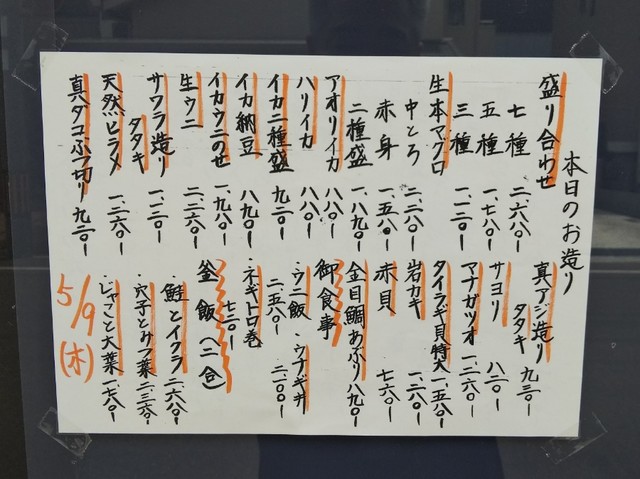 本日のお造り
盛り合わせ
七種 二、六八〇ー
五種 一、七八〇ー
三種 一、一二〇ー
生本マグロ
中とろ 二、二八〇ー
赤身 一、五八〇ー
二種盛 一、八九〇ー
アオリイカ 八八〇ー
ハリイカ 八八〇ー
イカ二種盛 九二〇ー
イカ納豆 八九〇ー
イカウニのせ 一、九八〇ー
生ウニ 二、二六〇ー
サワラ造り
タタキ 一、一二〇ー
天然ヒラメ 一、二六〇ー
真ダコぶつ切り 九二〇ー
真アジ造り
タタキ 九三〇ー
サヨリ 八二〇ー
マナガツオ 一、二六〇ー
タイラギ貝特大 一、五八〇ー
岩ガキ 一、二八〇ー
赤貝 七六〇ー
金目鯛あぶり 八九〇ー
御食事
・ウニ飯 二、五八〇ー
・ウナギ丼 二、一〇〇ー
・ネギトロ巻 七二〇ー
釜飯(二合)
・鮭とイクラ 二、六八〇ー
・穴子とみつ葉 二、三六〇ー
・じゃこと大葉 一、七八〇ー
5/9(木)